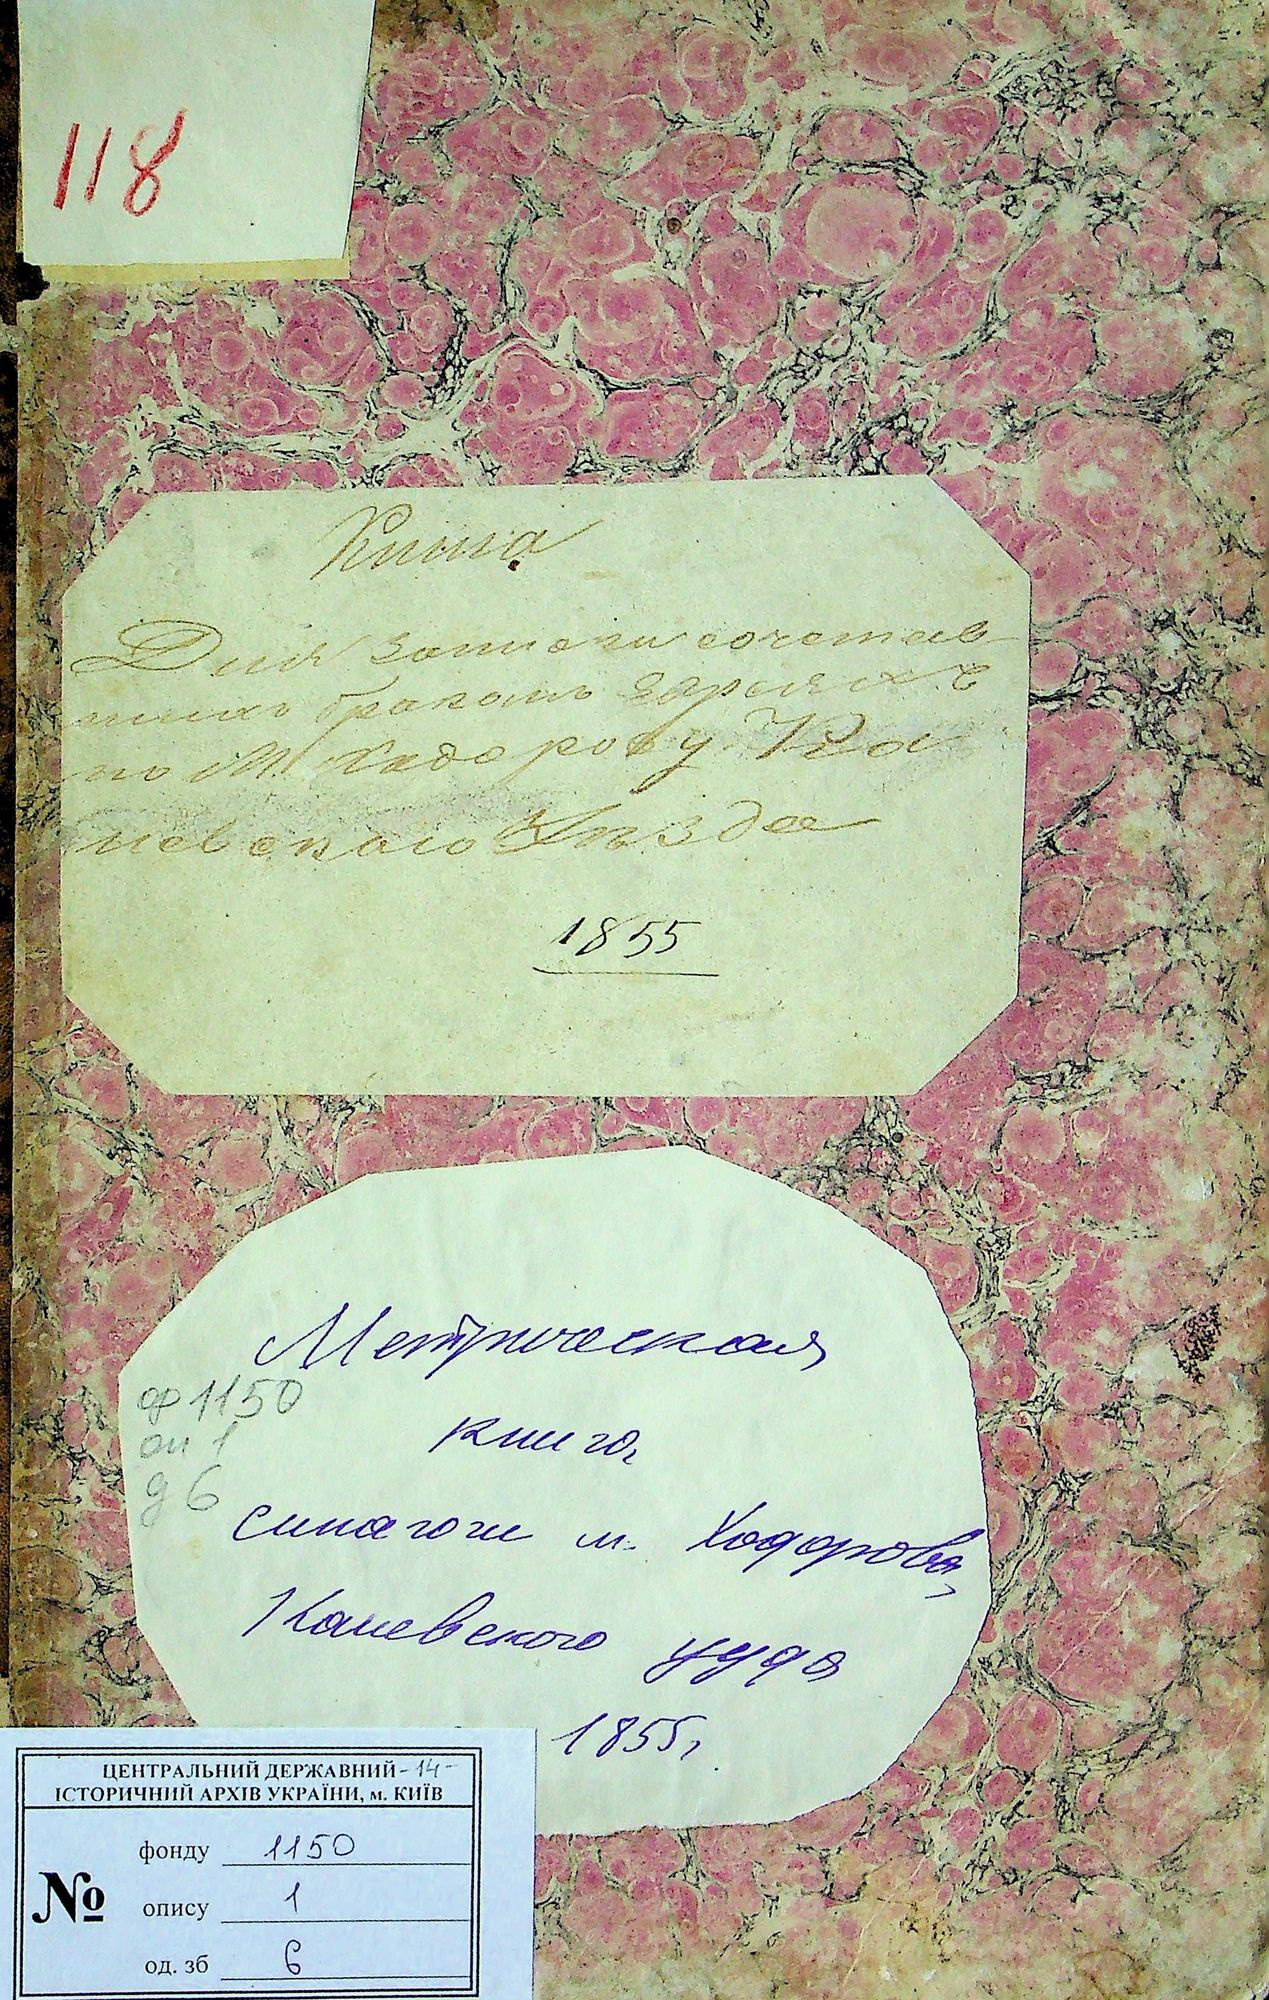 118
Книга
Для записки сочетав
шихся бракомъ Евреяхъ
по М. Ходорову Ка
невскаго Уѣзда
1855
Метрическая
ф 1150
книга
оп 1
д 6
синагоги м. Ходорова,
Каневского уезда
1855г.
ЦЕНТРАЛЬНИЙ ДЕРЖАВНИЙ -14-
ІСТОРИЧНИЙ АРХІВ УКРАЇНИ, м. КИЇВ
фонду 1150
№ опису 1
од. зб 6